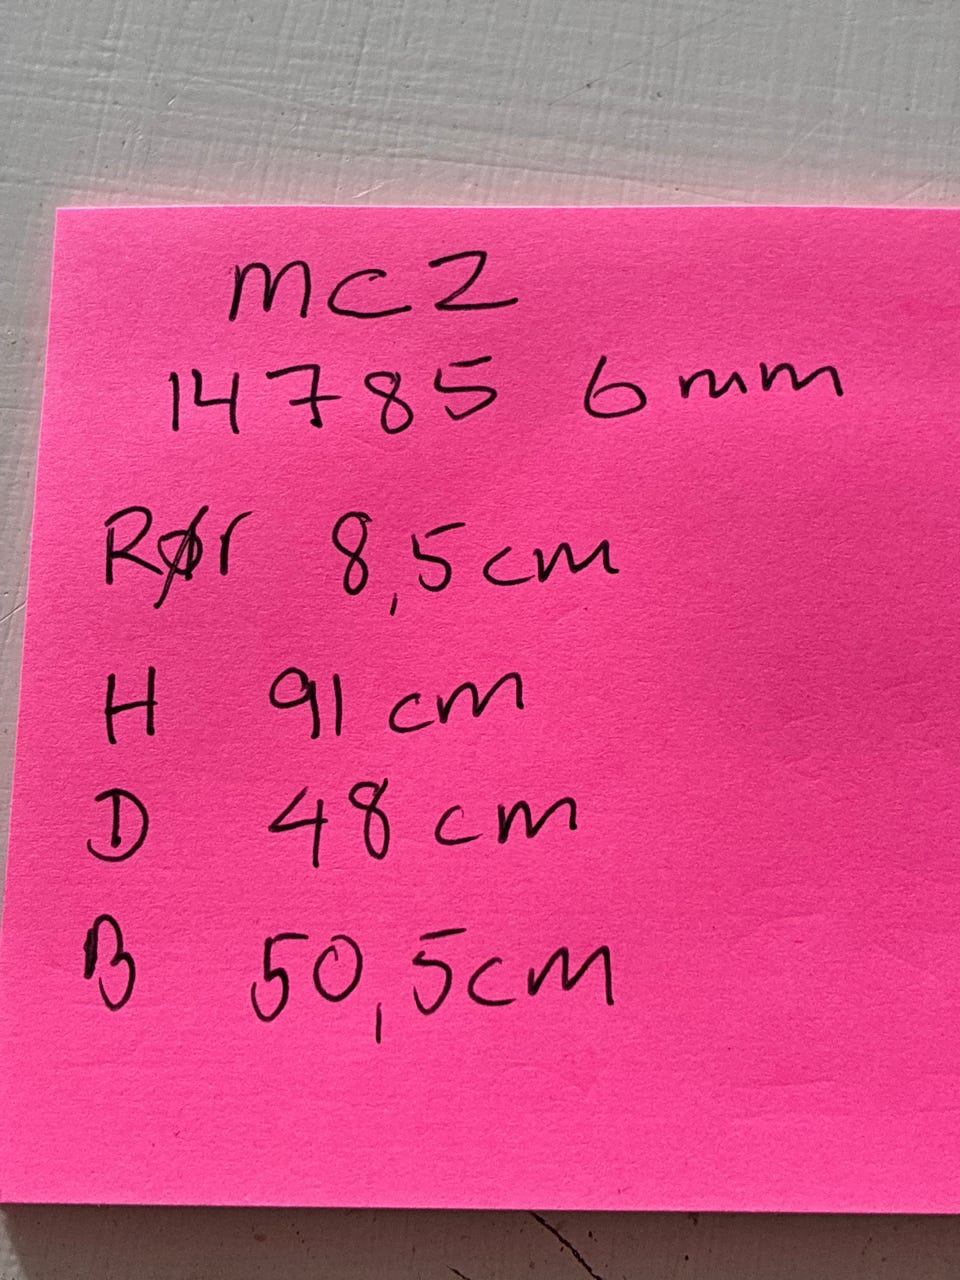 MCZ
14785 6mm
Rør 8,5cm
H 91 cm
D 48 cm
B 50,5cm